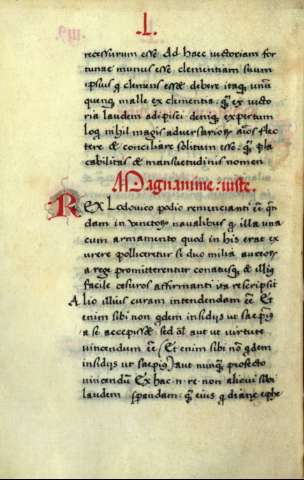 .L.
recessurum esse. Ad haec uictoriam for
tunae munus esse. clementiam suum
ipsius q clemens esset debere itaq, unu
quenq malle ex clementia. q̃ ex uicto
ria laudem adipisci deniq, expertum
loq nihil magis aduersarior̃ aĩos flec
tere & conciliare solitum esse: q̃ pla
cabilitatis & mansuetudinis nomen
Magnanime: iuste.
REX Lodouico podio renuncianti eẽ
dam in naualibus q illa una
cum armamento quod in his erat ex
urere polliceretur si duo milia
a rege promitterentur conatusq, & illis
facile cesuros affirmanti ita rescripsit
Alio illius curam intendendam eẽ. Et
enim sibi non qdem insidijs ut saepiꝰ
a se accepisset sed aut ut uirtute
uincendum eẽ (Et enim sibi nõ qdem
insidijs ut saepiꝰ) aut nunq̃ profecto
uincendũ Ex hac .n. re non alicui sibi
laudem spandam: q̃ eius q diane ephe